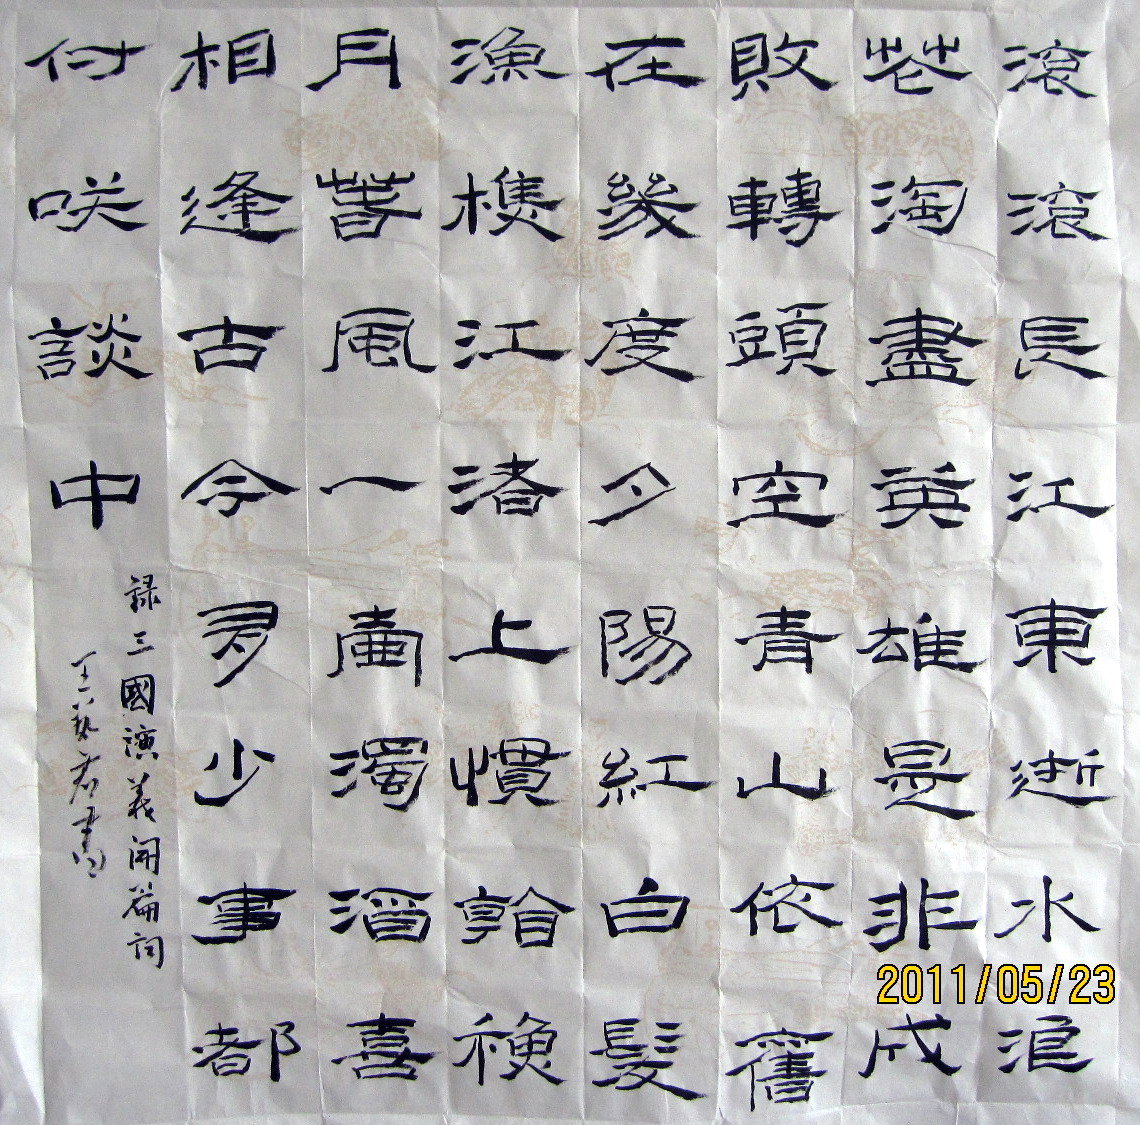 滾滾長江東逝水浪
花淘盡英雄是非成
敗轉頭空青山依舊
在幾度夕陽紅白髮
漁樵江渚上慣看秋
月春風一壺濁酒喜
相逢古今多少事都
付咲談中
録三國演義開篇詞
書
2011/05/23